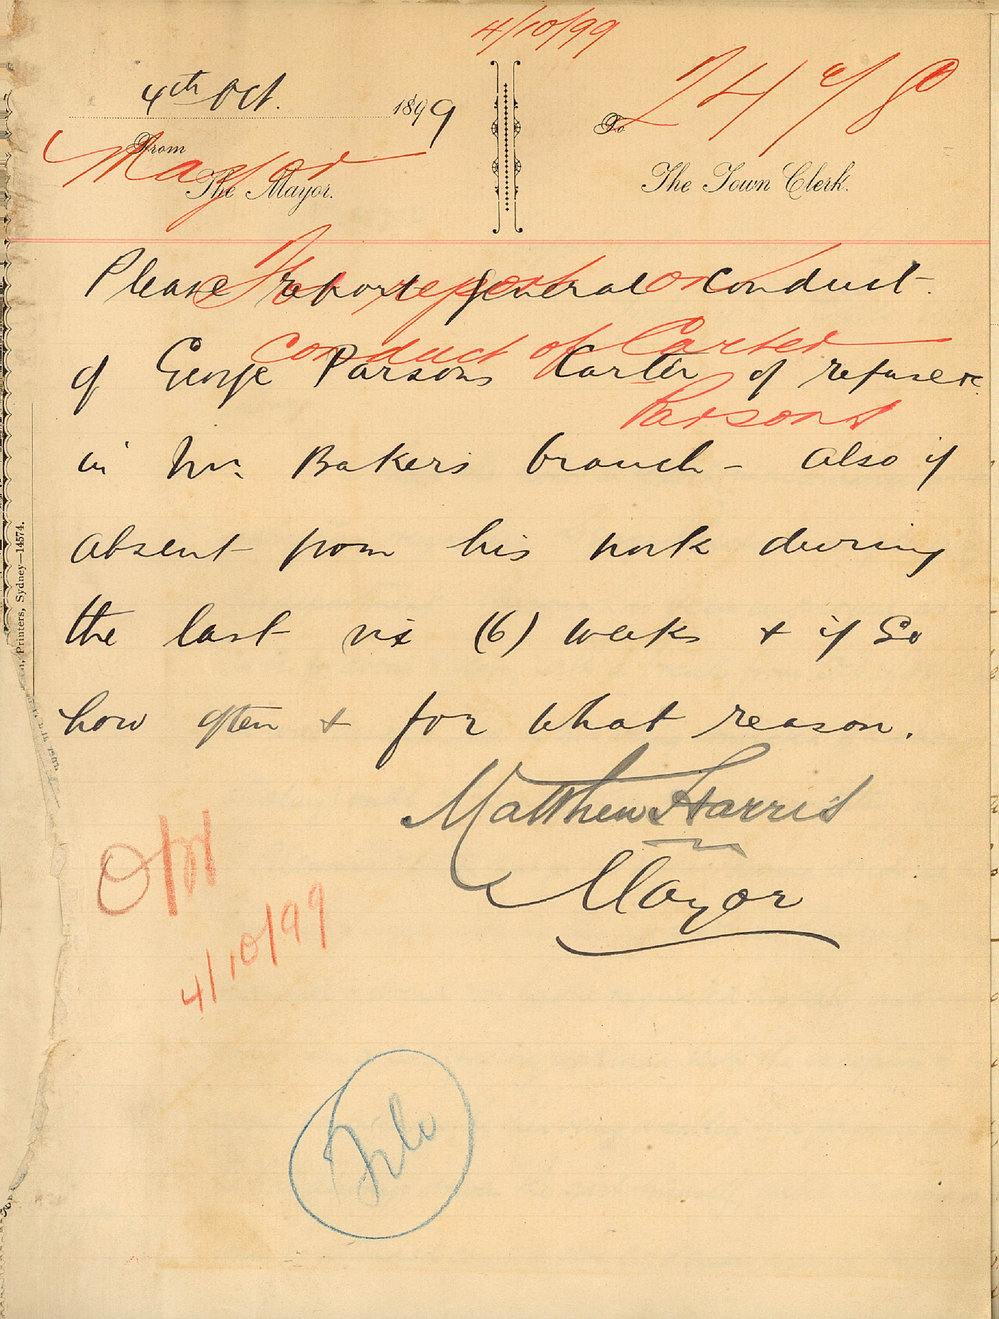 4/10/99
4th Oct. 1899
2478
From
To
Mayor
The Mayor.
The Town Clerk.
Please report general conduct
For report on
of George Parsons Carter of refuse &c
conduct of Carter
Parsons
in Mr. Bakers branch - also if
absent from his work during
the last six (6) weeks & if so
how often & for what reason.
Matthew Harris
Mayor
4/10/99
File
Printers, Sydney—14574.